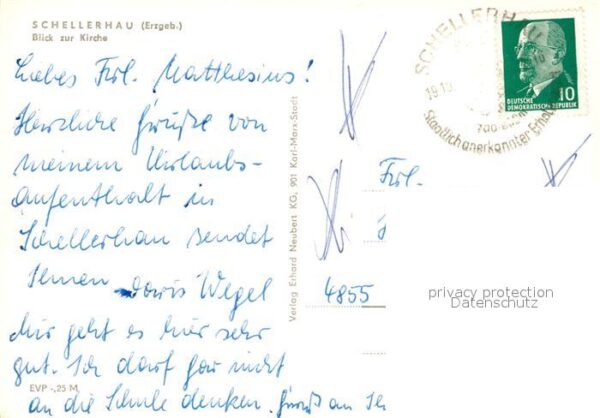 SCHELLERHAU (Erzgeb.)
Blick zur Kirche
Liebes Frl. Matthesius!
Herzliche Grüße von
meinem Urlaubs-
aufenthalt in
Schellerhau sendet
Ihnen Doris Wegel
Mir geht es hier sehr
gut. Ich darf gar nicht
an die Schule denken. Gruß an
EVP -,25 M
Verlag Erhard Neubert KG, 901 Karl-Marx-Stadt
SCHELLERHAU
19.10
700-800
Staatlich anerkannter
10
DEUTSCHE
DEMOKRATISCHE REPUBLIK
Frl.
4855
privacy protection
Datenschutz